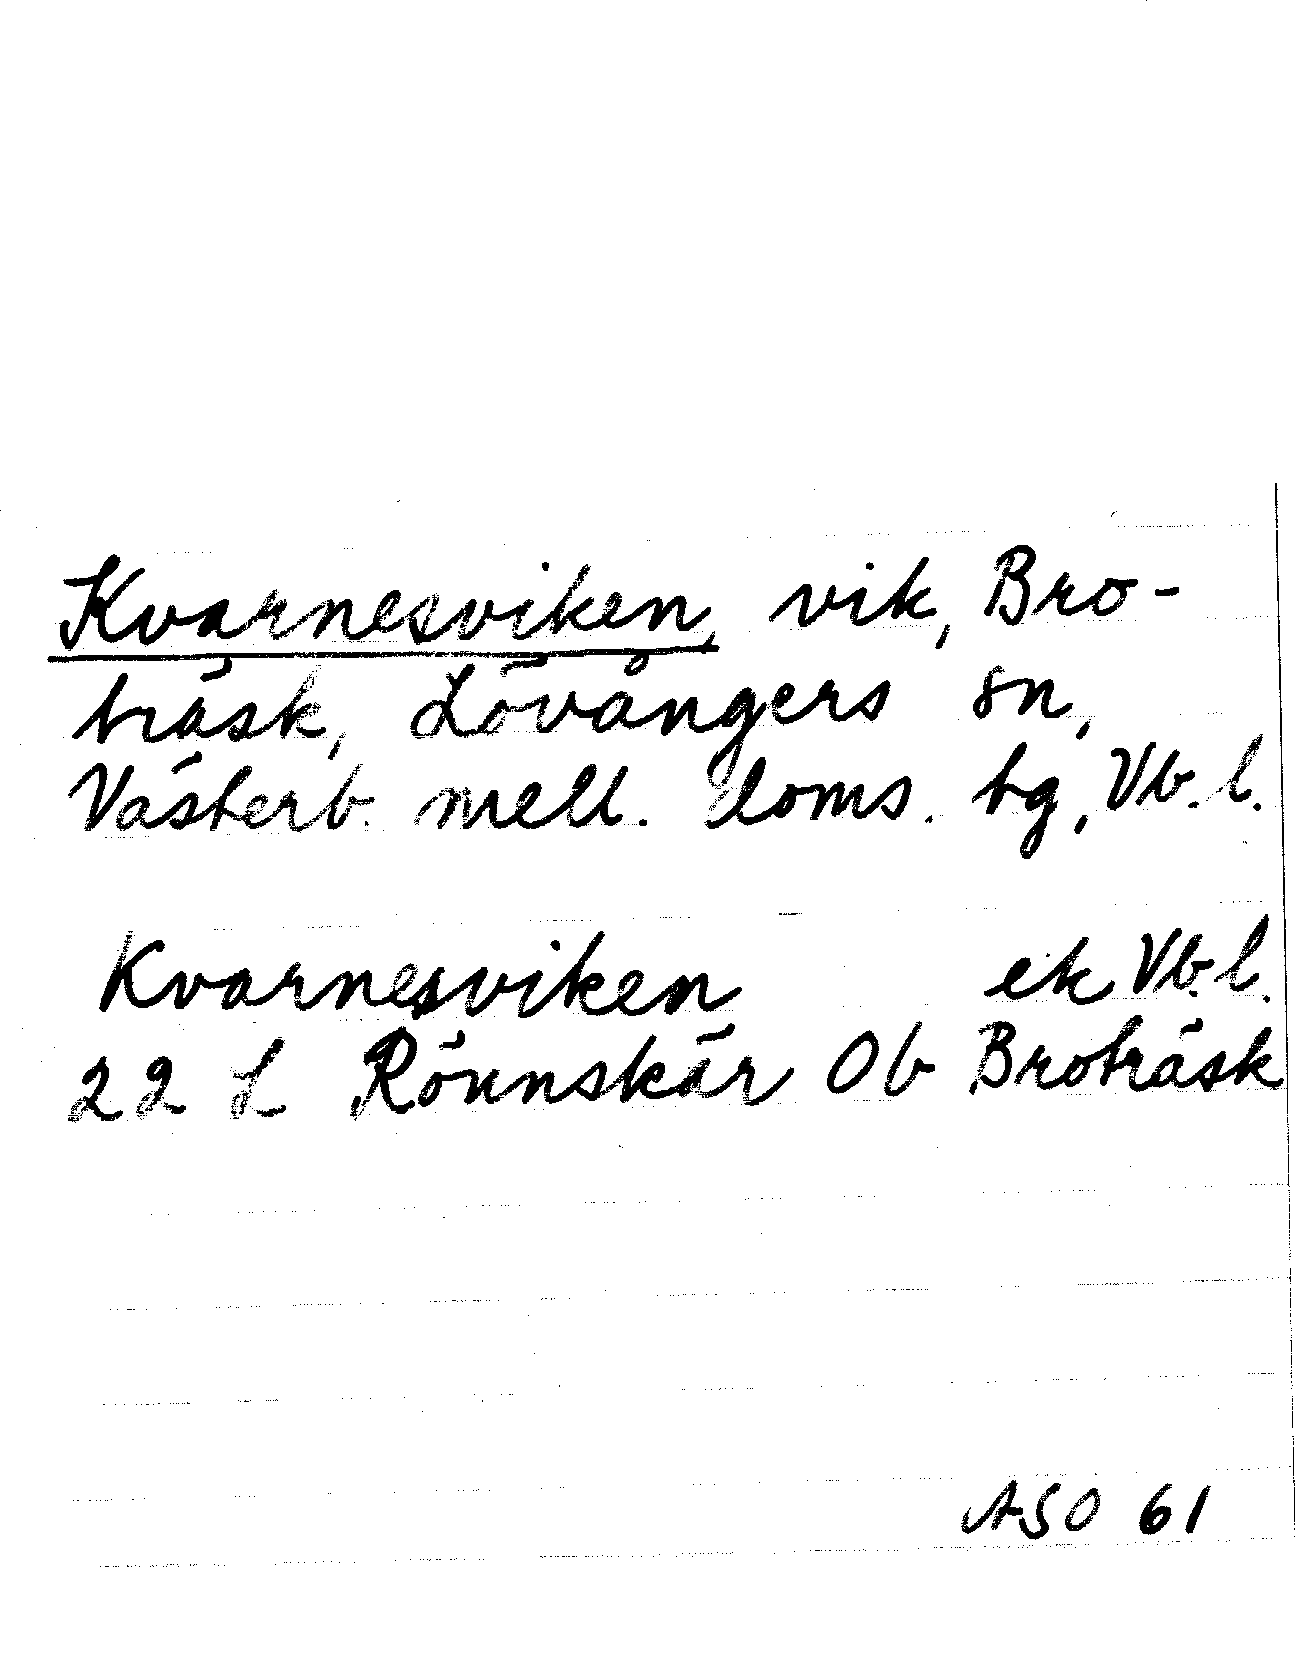 Kvarnesviken, vik, Bro-
träsk, Lövångers sn,
Västerb. mell. doms. tg, Vb. l.
Kvarnesviken ek Vb. l.
22 L Rönnskär Ob Broträsk
ASO 61